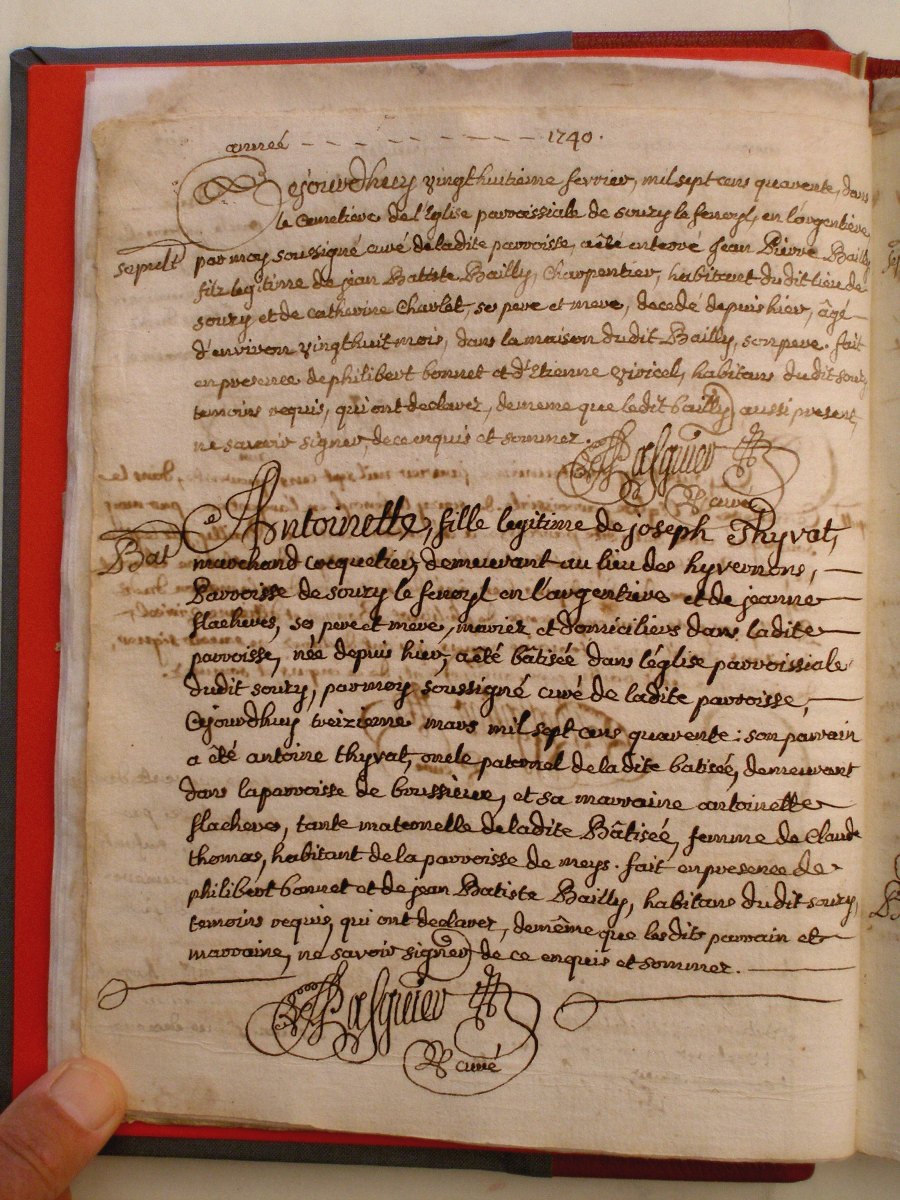 année - - - - - - - - - 1740.
Cejourdhuy vingthuitieme fevrier, mil sept cens quarente, dans
le Cimetiere de l'Eglise parroissiale de souzy le fenoyl, en l'argentiere,
sepult
par moy soussigné curé de ladite parroisse, a êté enterré jean Pierre Bailly
filz legitime de jean Batiste Bailly, Charpentier, habitant dudit lieu de
souzy et de catherine Charlet, ses pere et mere, decedé depuis hier, âgé
d'environ vingthuit mois, dans la maison dudit Bailly, son pere. fait
en presence de philibert bonnet et d'Etienne viricel, habitans dudit souzy,
temoins requis, qui ont declarez, de meme que ledit bailly aussi present,
ne savoir signer, de ce enquis et sommez.
Pasquier
curé
Bat
Antoinette, fille legitime de joseph Thyvat,
marchand cocquetier, demeurant au lieu des hyvernons,
Parroisse de souzy le fenoyl en l'argentiere et de jeanne
flacheres, ses pere et mere, mariez et domiciliers dans ladite
parroisse, née depuis hier, a êté bâtisée dans l'église parroissiale
dudit souzy, par moy soussigné curé de ladite parroisse,
Cejourdhuy treizieme mars mil sept cens quarente: son parrain
a êté antoine thyvat, oncle paternel de ladite batisée, demeurant
dans la parroisse de boussieue, et sa marraine antoinette
flacheres, tante maternelle de ladite Bâtisée, femme de Claude
thomas, habitant de la parroisse de meys. fait en presence de
philibert bonnet et de jean Batiste Bailly, habitans dudit souzy,
temoins requis, qui ont declarez, demême que lesdits parrain et
marraine, ne savoir signer de ce enquis et sommez.
Pasquier
curé